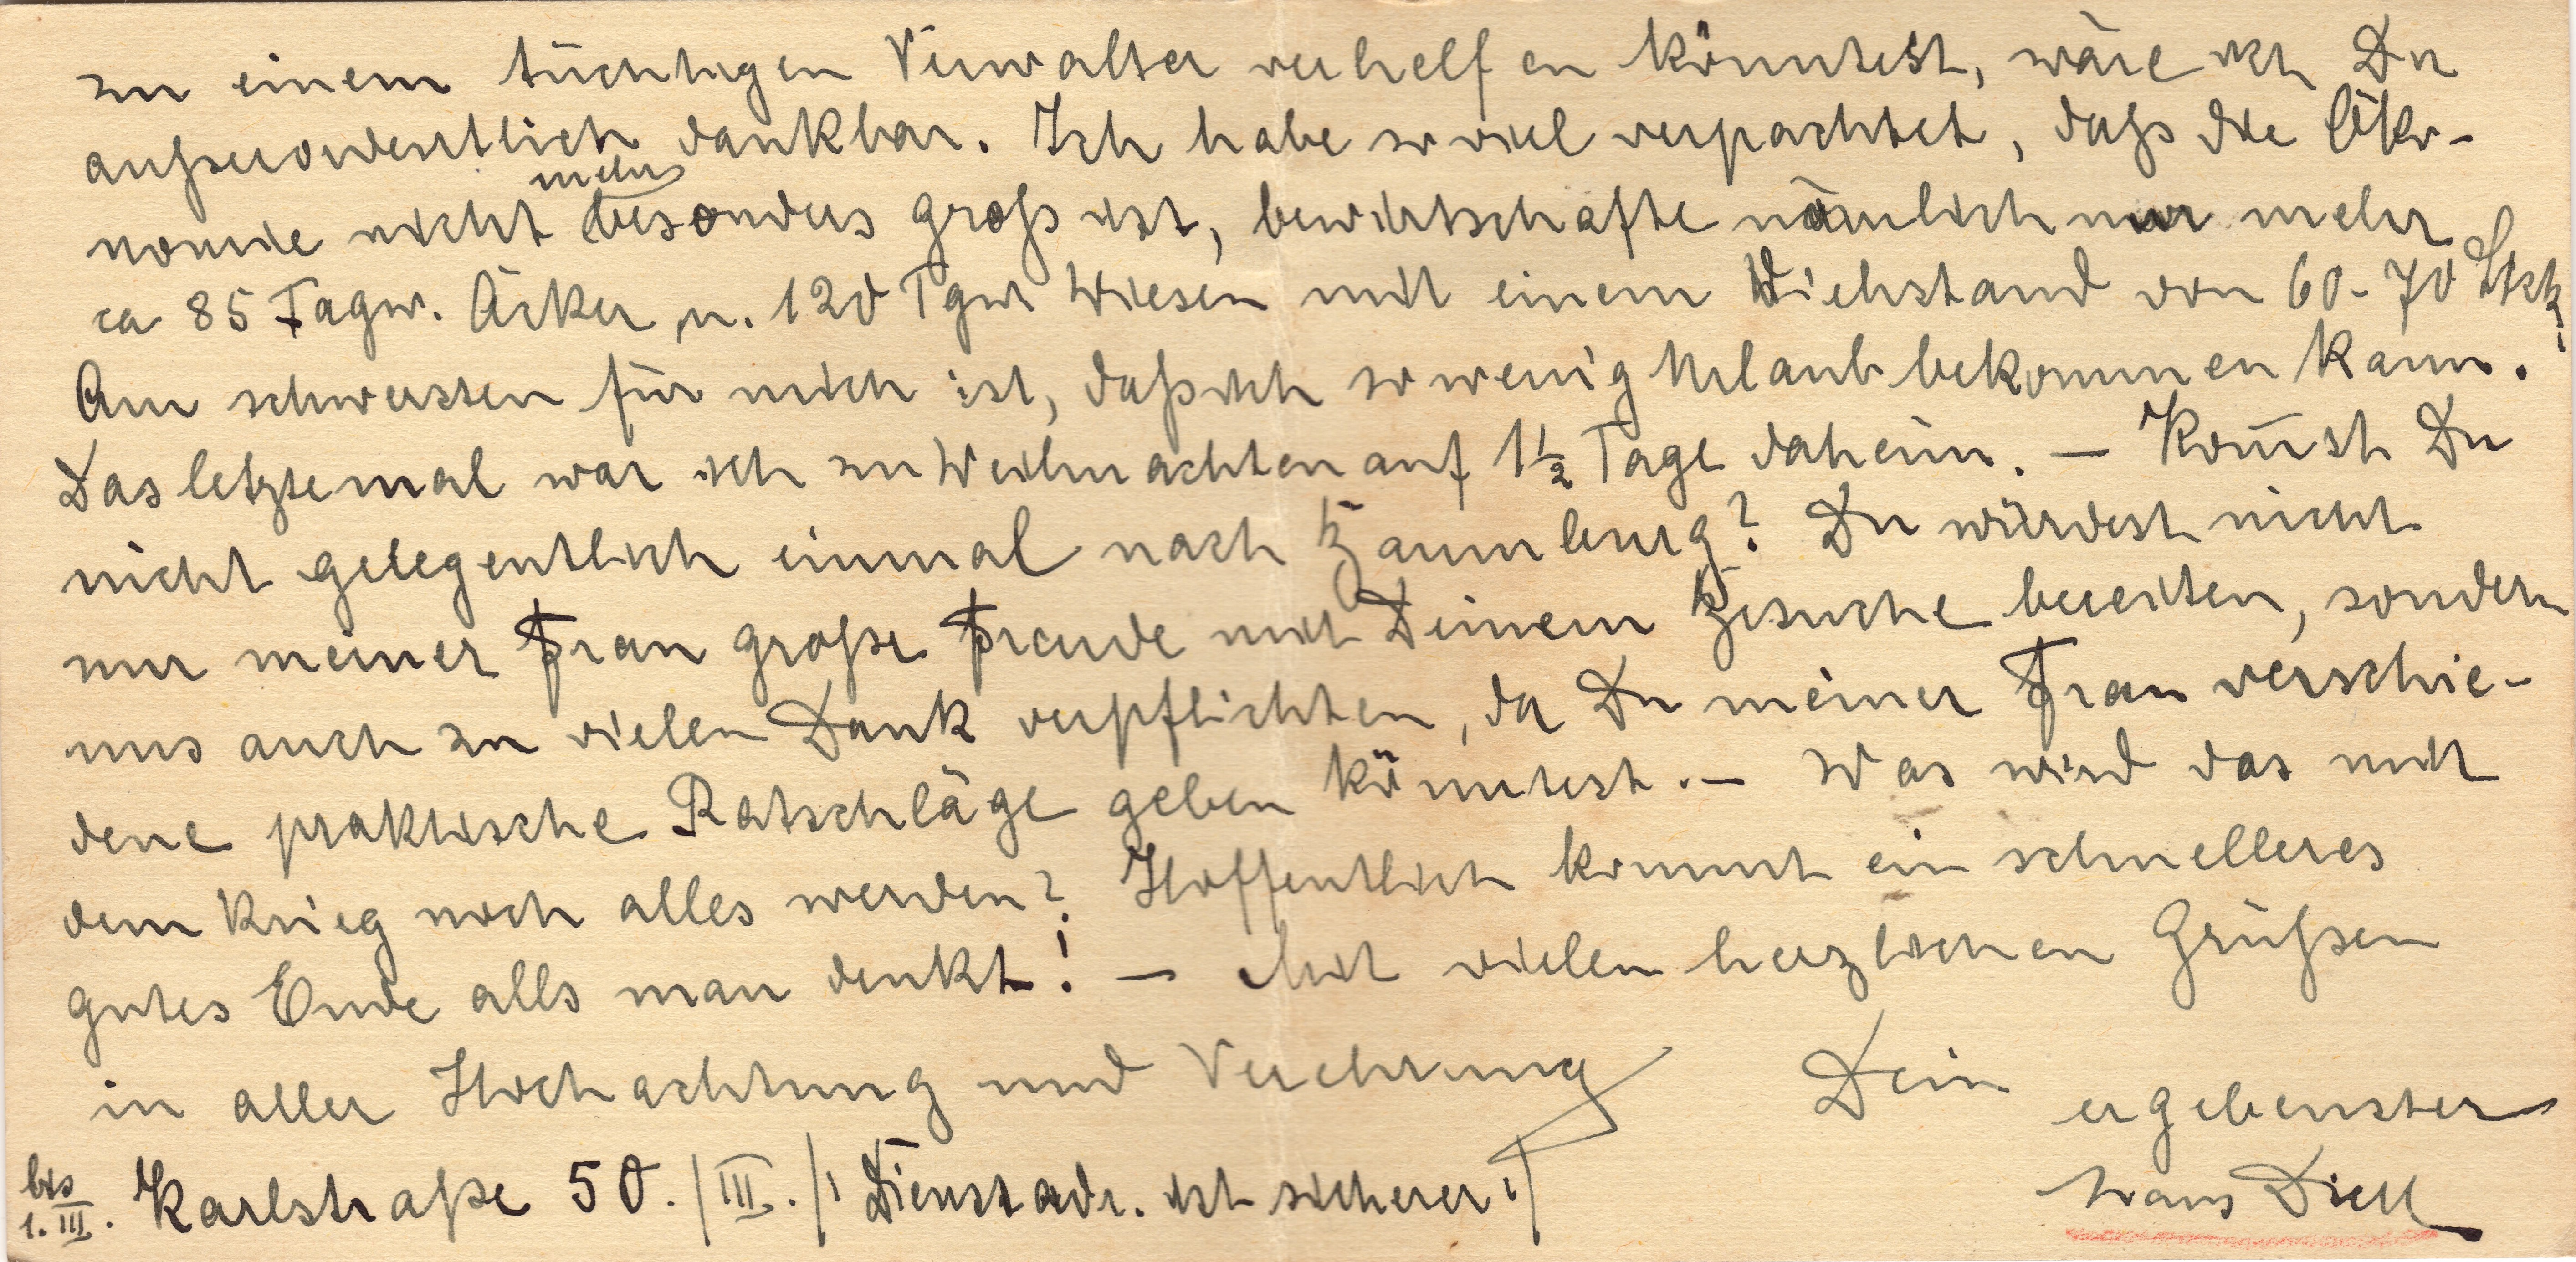 zu einem tüchtigen Verwalter verhelfen könntest, wäre ich Du
außerordentlich dankbar. Ich habe so viel verpachtet, daß die Öko-
mehr
nomie nicht besonders groß ist, bewirtschafte nämlich nur mehr
ca 85 Tagw. Äcker u. 120 Tgw Wiesen mit einem Viehstand von 60-70 Stck!
Am schwersten für mich ist, daß ich so wenig Urlaub bekommen kann.
Das letztemal war ich zu Weihnachten auf 1½ Tage daheim. — Kom̄st Du
nicht gelegentlich einmal nach Baumburg? Du würdest nicht
nur meiner Frau große Freude mit Deinem Besuche bereiten, sondern
uns auch zu vielen Dank verpflichten, da Du meiner Frau verschie-
dene praktische Ratschläge geben könntest. — Was wird das mit
dem Krieg noch alles werden? Hoffentlich kommt ein schnelleres
gutes Ende alls man denkt! — Mit vielen herzlichen Grüßen
in aller Hochachtung und Verehrung Dein
ergebenster
bis 1. III. Karlstraße 50. /III./ Dienstadr. ist sicherer!
Hans Dietl